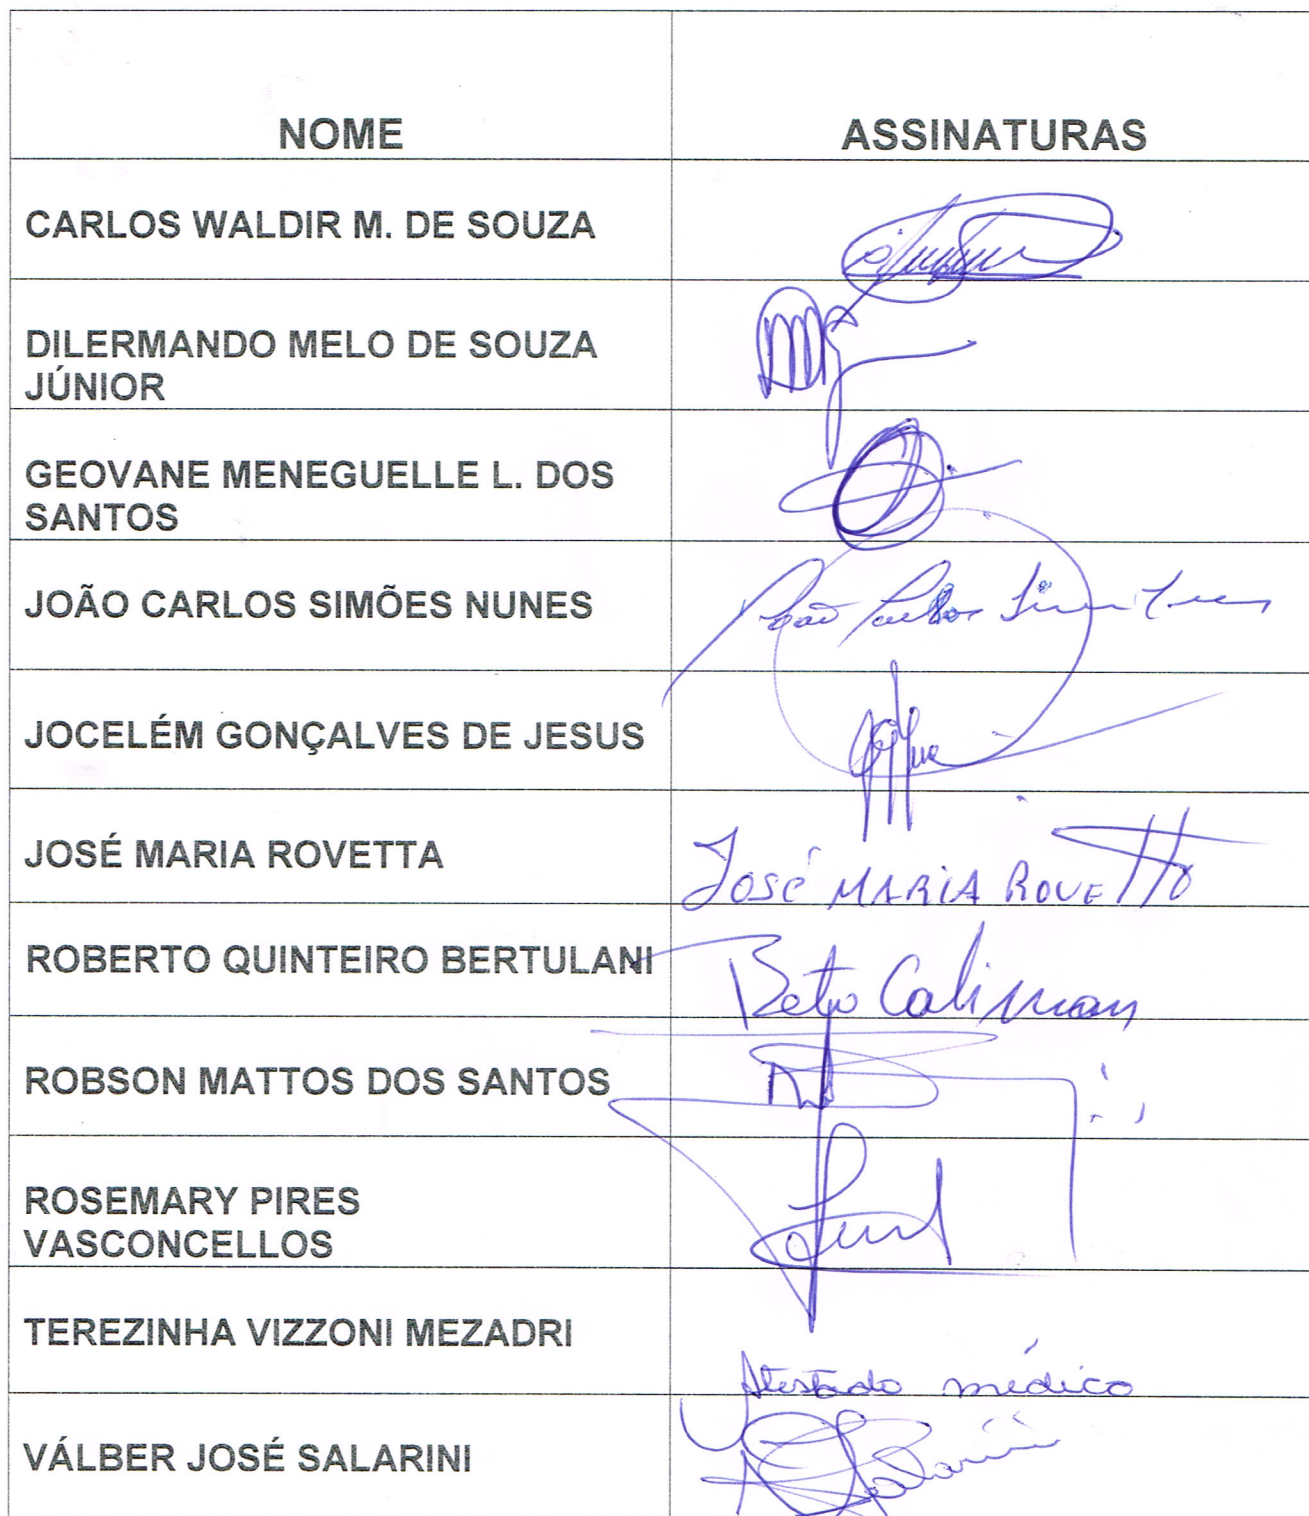 NOME ASSINATURAS
CARLOS WALDIR M. DE SOUZA
DILERMANDO MELO DE SOUZA
JÚNIOR
GEOVANE MENEGUELLE L. DOS
SANTOS
JOÃO CARLOS SIMÕES NUNES João Carlos
JOCELÉM GONÇALVES DE JESUS
JOSÉ MARIA ROVETTA José MARiA ROVETTA
ROBERTO QUINTEIRO BERTULANI Beto Caliman
ROBSON MATTOS DOS SANTOS
ROSEMARY PIRES
VASCONCELLOS
TEREZINHA VIZZONI MEZADRI Atestado médico
VÁLBER JOSÉ SALARINI Salarini